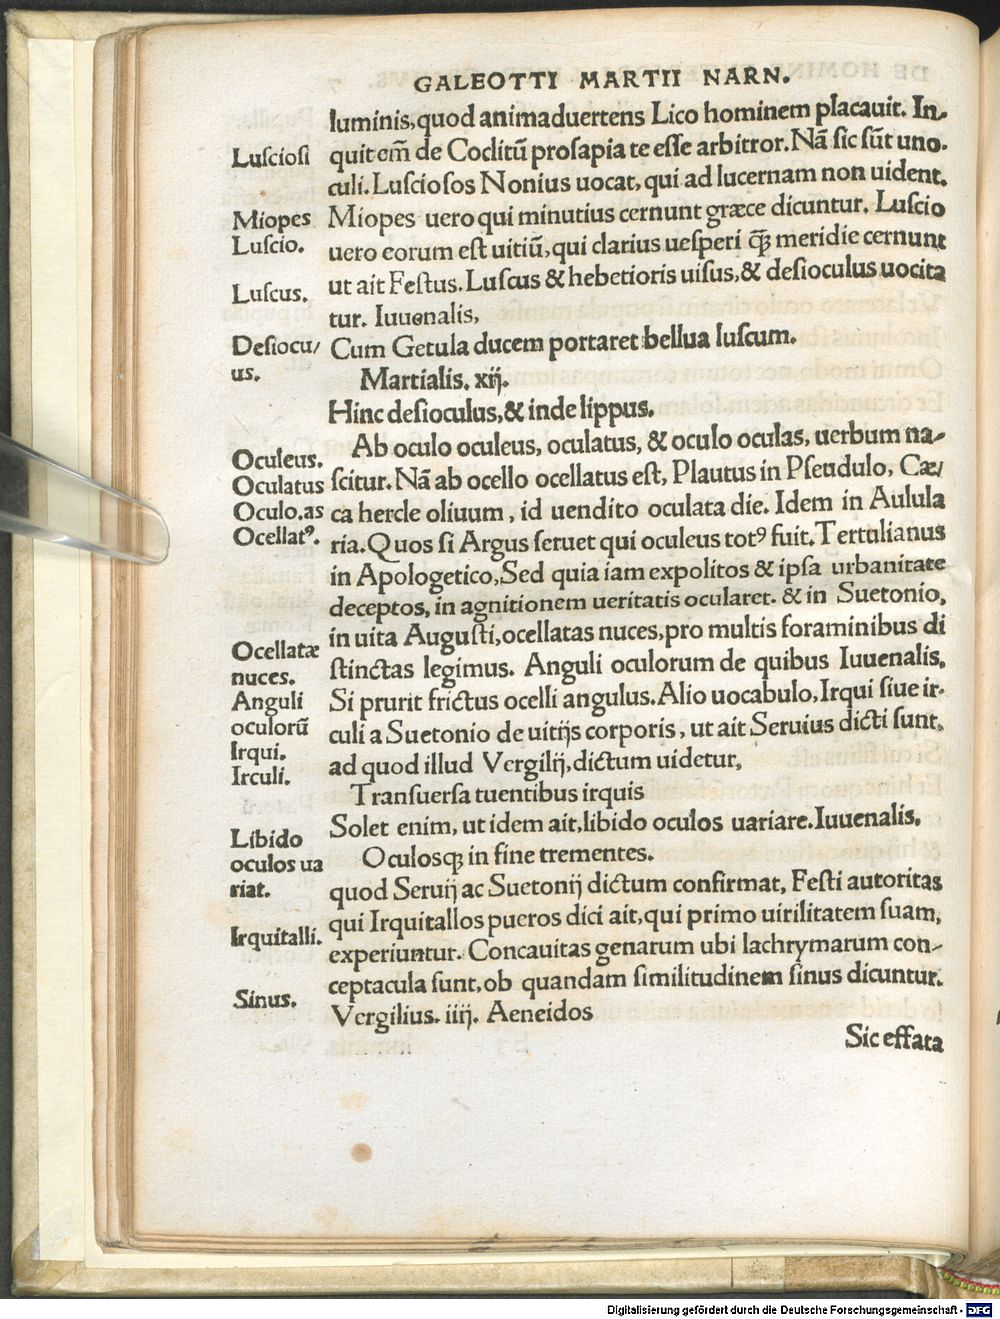 GALEOTTI MARTII NARN.
luminis, quod animaduertens Lico hominem placauit. In-
quit em̃ de Coclitũ prosapia te esse arbitror. Nã sic sũt uno-
culi. Lusciosos Nonius uocat, qui ad lucernam non uident.
Miopes uero qui minutius cernunt græce dicuntur. Luscio
uero eorum est uitiũ, qui clarius uesperi q̃ȝ meridie cernunt
ut ait Festus. Luscus & hebetioris uisus, & desioculus uocita
tur. Iuuenalis,
Cum Getula ducem portaret bellua luscum.
Martialis. xij.
Hinc desioculus, & inde lippus.
Ab oculo oculeus, oculatus, & oculo oculas, uerbum na-
scitur. Nã ab ocello ocellatus est, Plautus in Pseudulo, Cæ/
ca hercle oliuum, id uendito oculata die. Idem in Aulula
ria. Quos si Argus seruet qui oculeus totꝰ fuit. Tertulianus
in Apologetico, Sed quia iam expolitos & ipsa urbanitate
deceptos, in agnitionem ueritatis ocularet. & in Suetonio,
in uita Augusti, ocellatas nuces, pro multis foraminibus di
stinctas legimus. Anguli oculorum de quibus Iuuenalis,
Si prurit frictus ocelli angulus. Alio uocabulo, Irqui siue ir-
culi a Suetonio de uitijs corporis, ut ait Seruius dicti sunt,
ad quod illud Vergilij, dictum uidetur,
Transuersa tuentibus irquis
Solet enim, ut idem ait, libido oculos uariare. Iuuenalis.
Oculosqȝ in fine trementes.
quod Seruij ac Suetonij dictum confirmat, Festi autoritas
qui Irquitallos pueros dici ait, qui primo uirilitatem suam,
experiuntur. Concauitas genarum ubi lachrymarum con-
ceptacula sunt, ob quandam similitudinem sinus dicuntur.
Vergilius. iiij. Aeneidos
Sic effata
Lusciosi
Miopes
Luscio.
Luscus.
Desiocu/
us.
Oculeus.
Oculatus
Oculo.as
Ocellatꝰ.
Ocellatæ
nuces.
Anguli
oculorũ
Irqui.
Irculi.
Libido
oculos ua
riat.
Irquitalli.
Sinus.
Digitalisierung gefördert durch die Deutsche Forschungsgemeinschaft - DFG